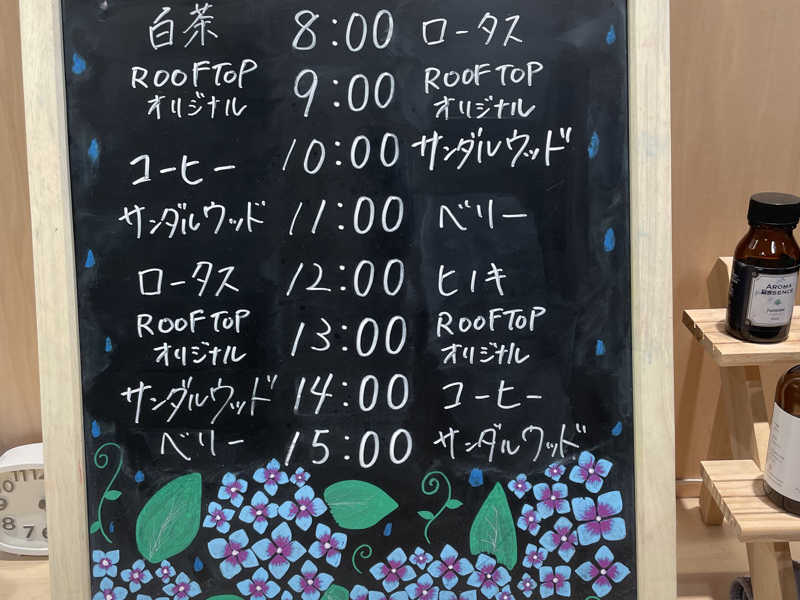 白茶 8:00 ロータス
ROOFTOP オリジナル 9:00 ROOFTOP オリジナル
コーヒー 10:00 サンダルウッド
サンダルウッド 11:00 ベリー
ロータス 12:00 ヒノキ
ROOFTOP オリジナル 13:00 ROOFTOP オリジナル
サンダルウッド 14:00 コーヒー
ベリー 15:00 サンダルウッド
AROMA
ESSENCE
10 11 12
9
8 7 6